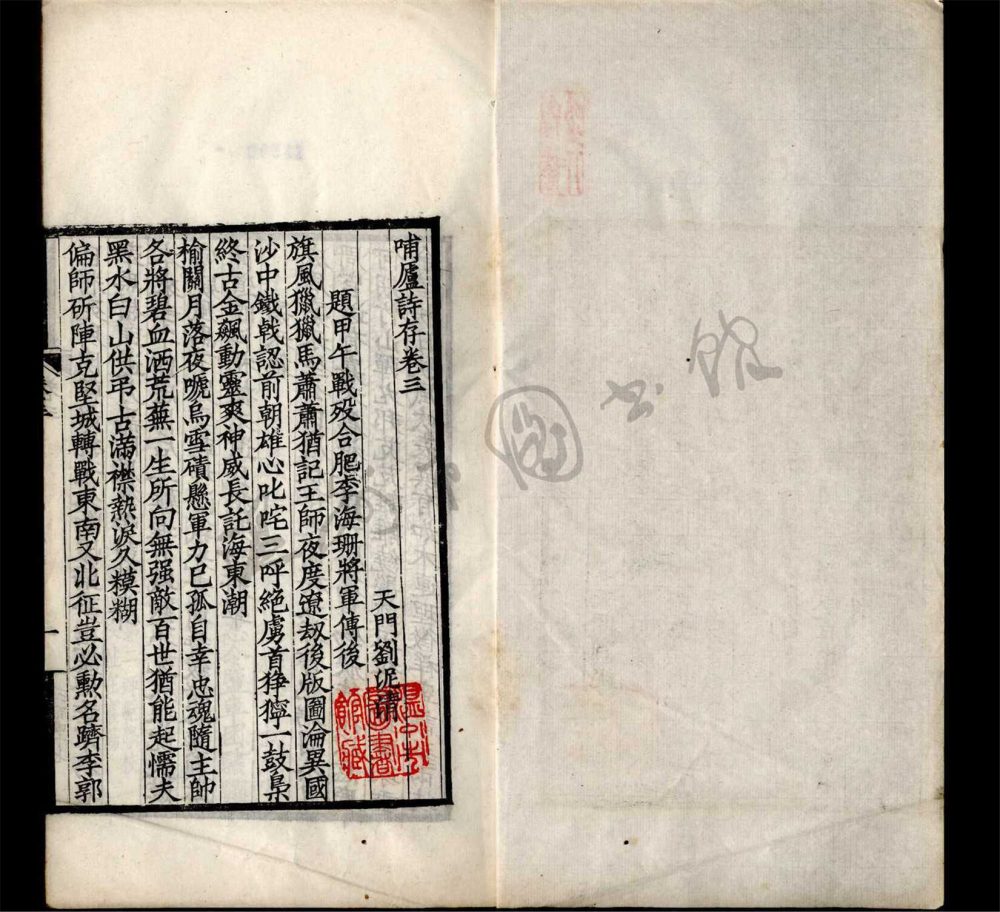 哺廬詩存卷三
天門劉泥清
題甲午戰歿合肥李海珊將軍傳後
旗風獵獵馬蕭蕭猶記王師夜度遼刼後版圖淪異國
沙中鐵戟認前朝雄心叱咤三呼絕虜首猙獰一鼓梟
終古金飆動靈爽神威長託海東潮
榆關月落夜嗁烏雪磧懸軍力已孤自幸忠魂隨主帥
各將碧血洒荒蕪一生所向無强敵百世猶能起懦夫
黑水白山供弔古滿襟熱淚久糢糊
偏師斫陣克堅城轉戰東南又北征豈必勲名躋李郭
一
溫州市
圖書
館藏
圖書館